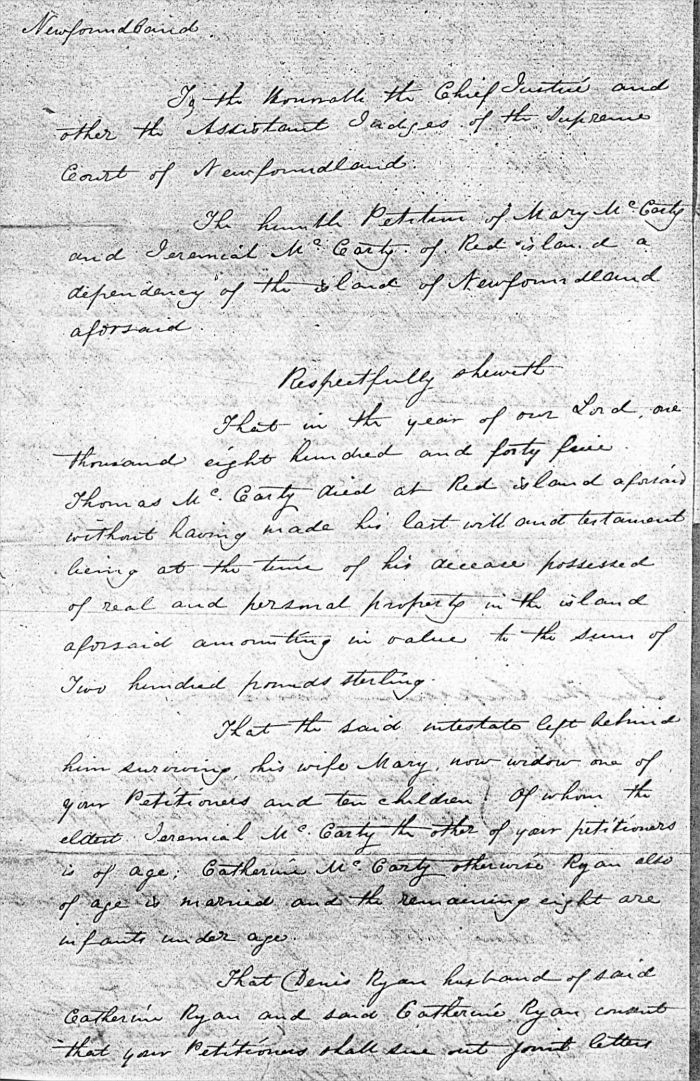 Newfoundland
To the Honorable the Chief Justice and
other the Assistant Judges of the Supreme
Court of Newfoundland.
The humble Petition of Mary Mc. Carty
and Jeremiah Mc. Carty of Red island a
dependency of the island of Newfoundland
aforsaid.
Respectfully sheweth
That in the year of our Lord, one
thousand eight hundred and forty five
Thomas Mc. Carty died at Red island aforsaid
without having made his last will and testament
being at the time of his decease possessed
of real and personal property in the island
aforsaid amounting in value to the sum of
Two hundred pounds sterling.
That the said intestate left behind
him surviving, his wife Mary, now widow one of
your Petitioners and ten children, Of whom the
eldest Jeremiah Mc. Carty the other of your petitioners
is of age; Catherine Mc. Carty otherwise Ryan also
of age is married and the remaining eight are
infants under age.
That Denis Ryan husband of said
Catherine Ryan and said Catherine Ryan consent
that your Petitioners shall sue out joint letters